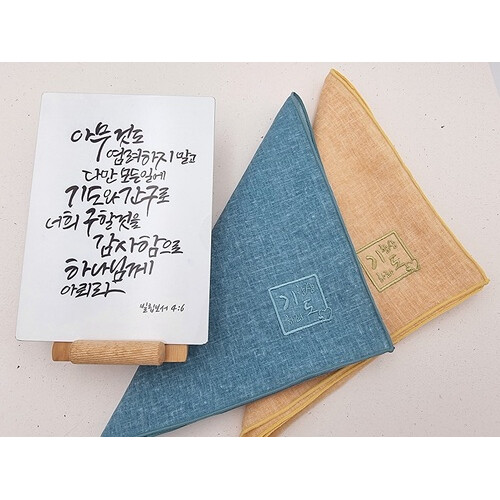 아무것도
염려하지 말고
다만 모든 일에
기도와 간구로
너희 구할 것을
감사함으로
하나님께
아뢰라
빌립보서 4:6
기도
기도